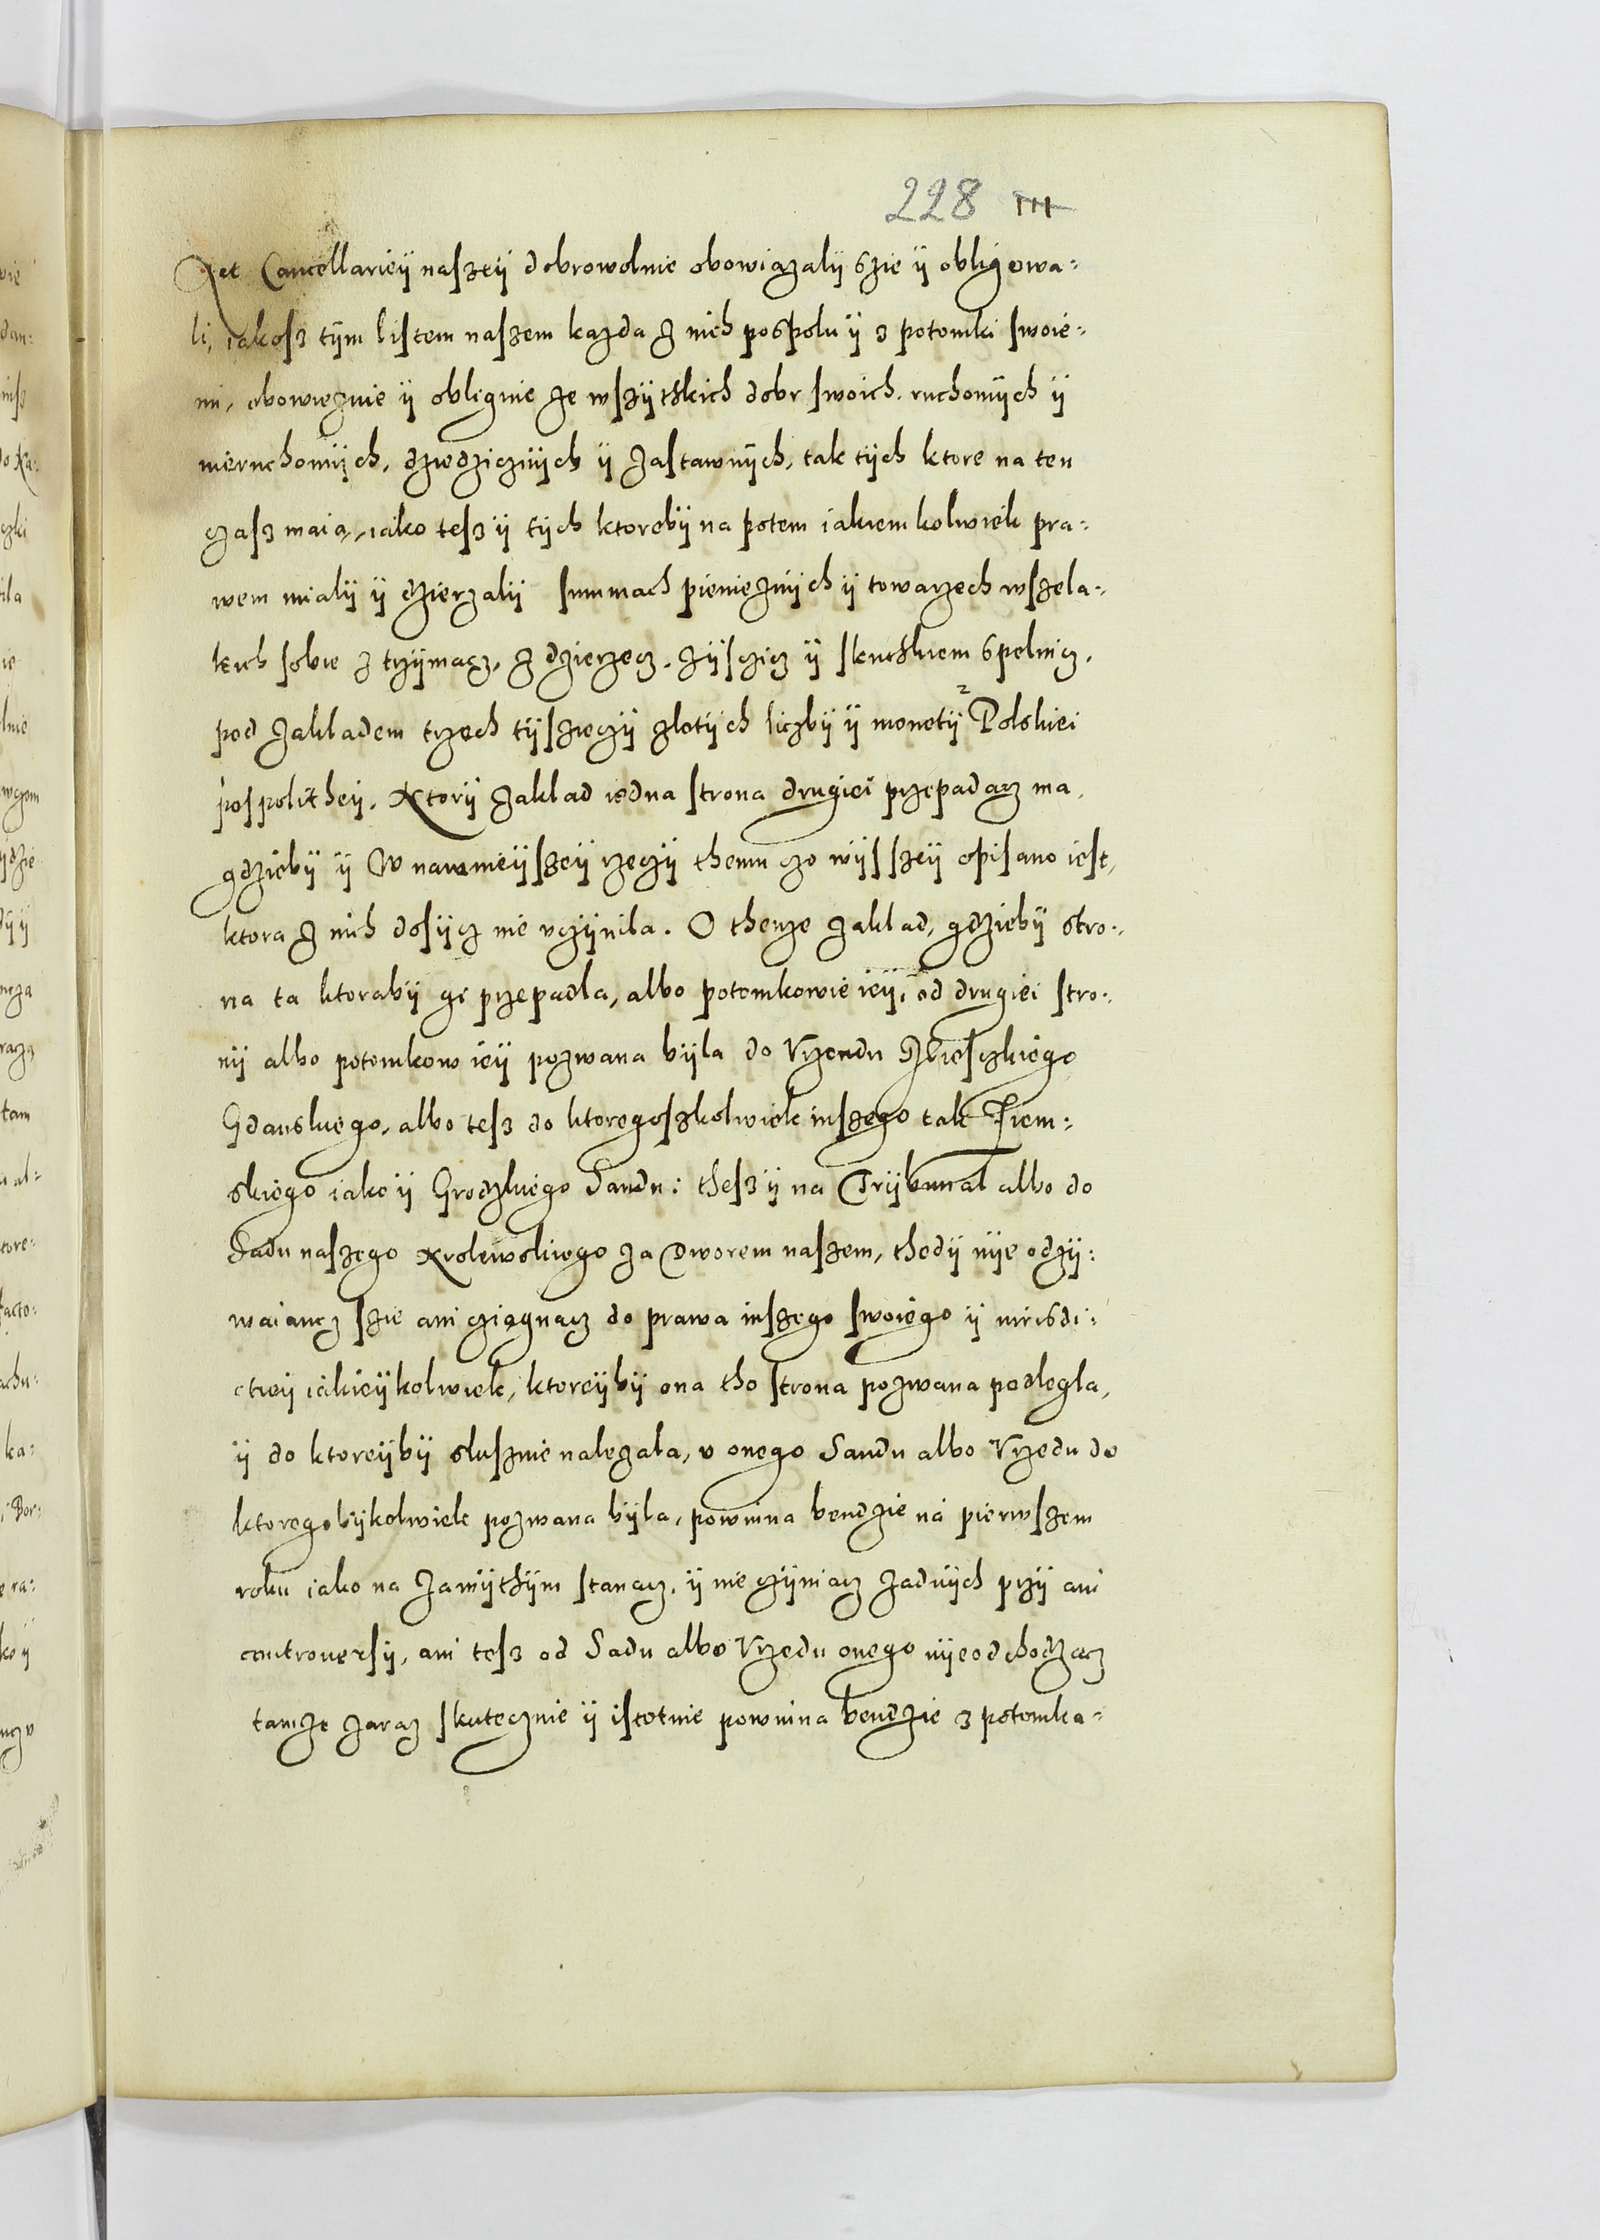 228
Act Cancellarieÿ naszeÿ dobrowolnie obowiązalÿ szie ÿ obligowa:
li, iakosz tÿm listem naszem kazda z nich pospolu ÿ z potomki swoie:
mi, obowieznie ÿ obliguie ze wszÿthkich dobr swoich ruchomÿch ÿ
nieruchomÿch, dziedzicznÿch ÿ zastawnÿch, tak tÿch ktore na ten
czasz maią, iako tesz ÿ tÿch ktorebÿ na potem iakiemkolwiek pra:
wem mialÿ ÿ dzierzalÿ summach pienieznÿch ÿ towarzech wszela:
kich sobie ztrzÿmacz, zdzierzecz, zÿsczicz ÿ skuthkiem spelnicz,
pod zakladem trzech tÿszięczÿ zlotÿch liczbÿ ÿ monetÿ Polskiei
pospolitheÿ. Ktorÿ zaklad iedna strona drugiei przepadacz ma,
gdziebÿ ÿ w namnieÿszeÿ rzeczÿ themu czo wÿsszeÿ opisano iest,
ktora z nich dosÿcz nie uczÿnila. O thenze zaklad, gdziebÿ stro:
na ta ktorabÿ gi przepadla, albo potomkowie ieÿ, od drugiei stro:
nÿ albo potomkow ieÿ pozwana bÿla do Vrzendu Mieszkiego
Gdanskiego, albo tesz do ktoregoszkolwiek inszego tak Ziem:
skiego iako ÿ Grodzkiego Sandu: thesz ÿ na Trÿbunal albo do
Sadu naszego Krolewskiego za Dworem naszem, thedÿ nÿe odzÿ:
waiancz szie ani cziągnącz do prawa inszego swoiego ÿ iurisdi:
ctieÿ iakieÿkolwiek, ktoreÿbÿ ona tho strona pozwana podlegla,
ÿ do ktoreÿbÿ slusznie nalezala, v onego Sandu albo Vrzedu do
ktoregobÿkolwiek pozwana bÿla, powinna bendzie na pierwszem
roku iako na zawÿthÿm stanacz, ÿ nie czÿniacz zadnÿch przÿ ani
controuersÿ, ani tesz od Sadu albo Vrzedu onego nÿeodchodzacz
tamze zaraz skutecznie ÿ istotnie powinna bendzie z potomka: